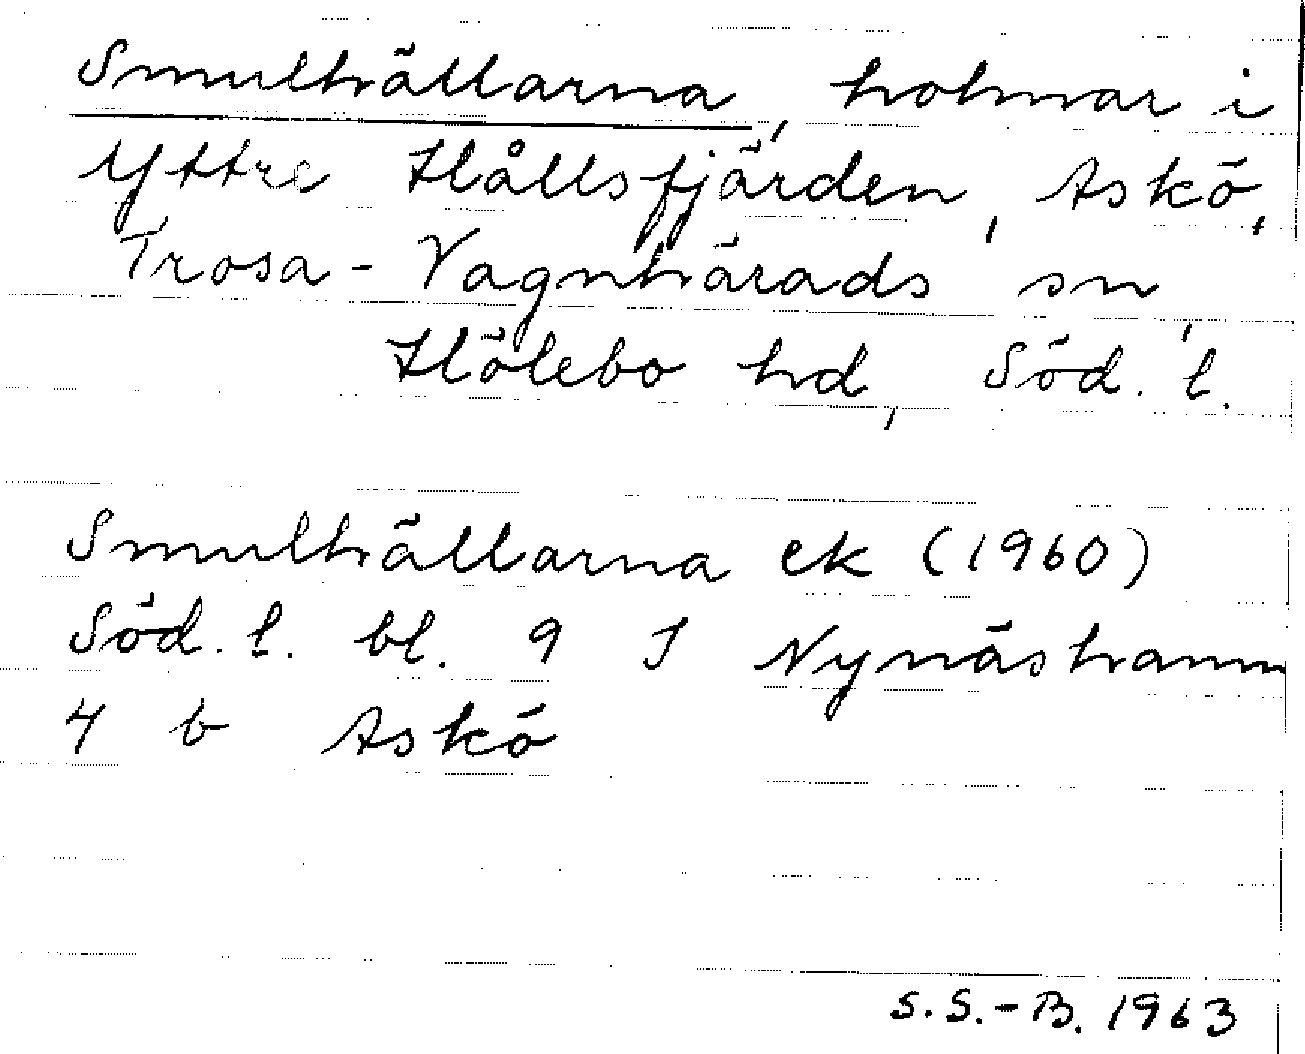 Smulhällarna, holmar i
Yttre Hållsfjärden, Askö,
Trosa-Vagnhärads sn,
Hölebo hd, Söd. l.
Smulhällarna ek (1960)
Söd. l. bl. 9 I Nynäshamn
4 b Askö
S.S.-B. 1963